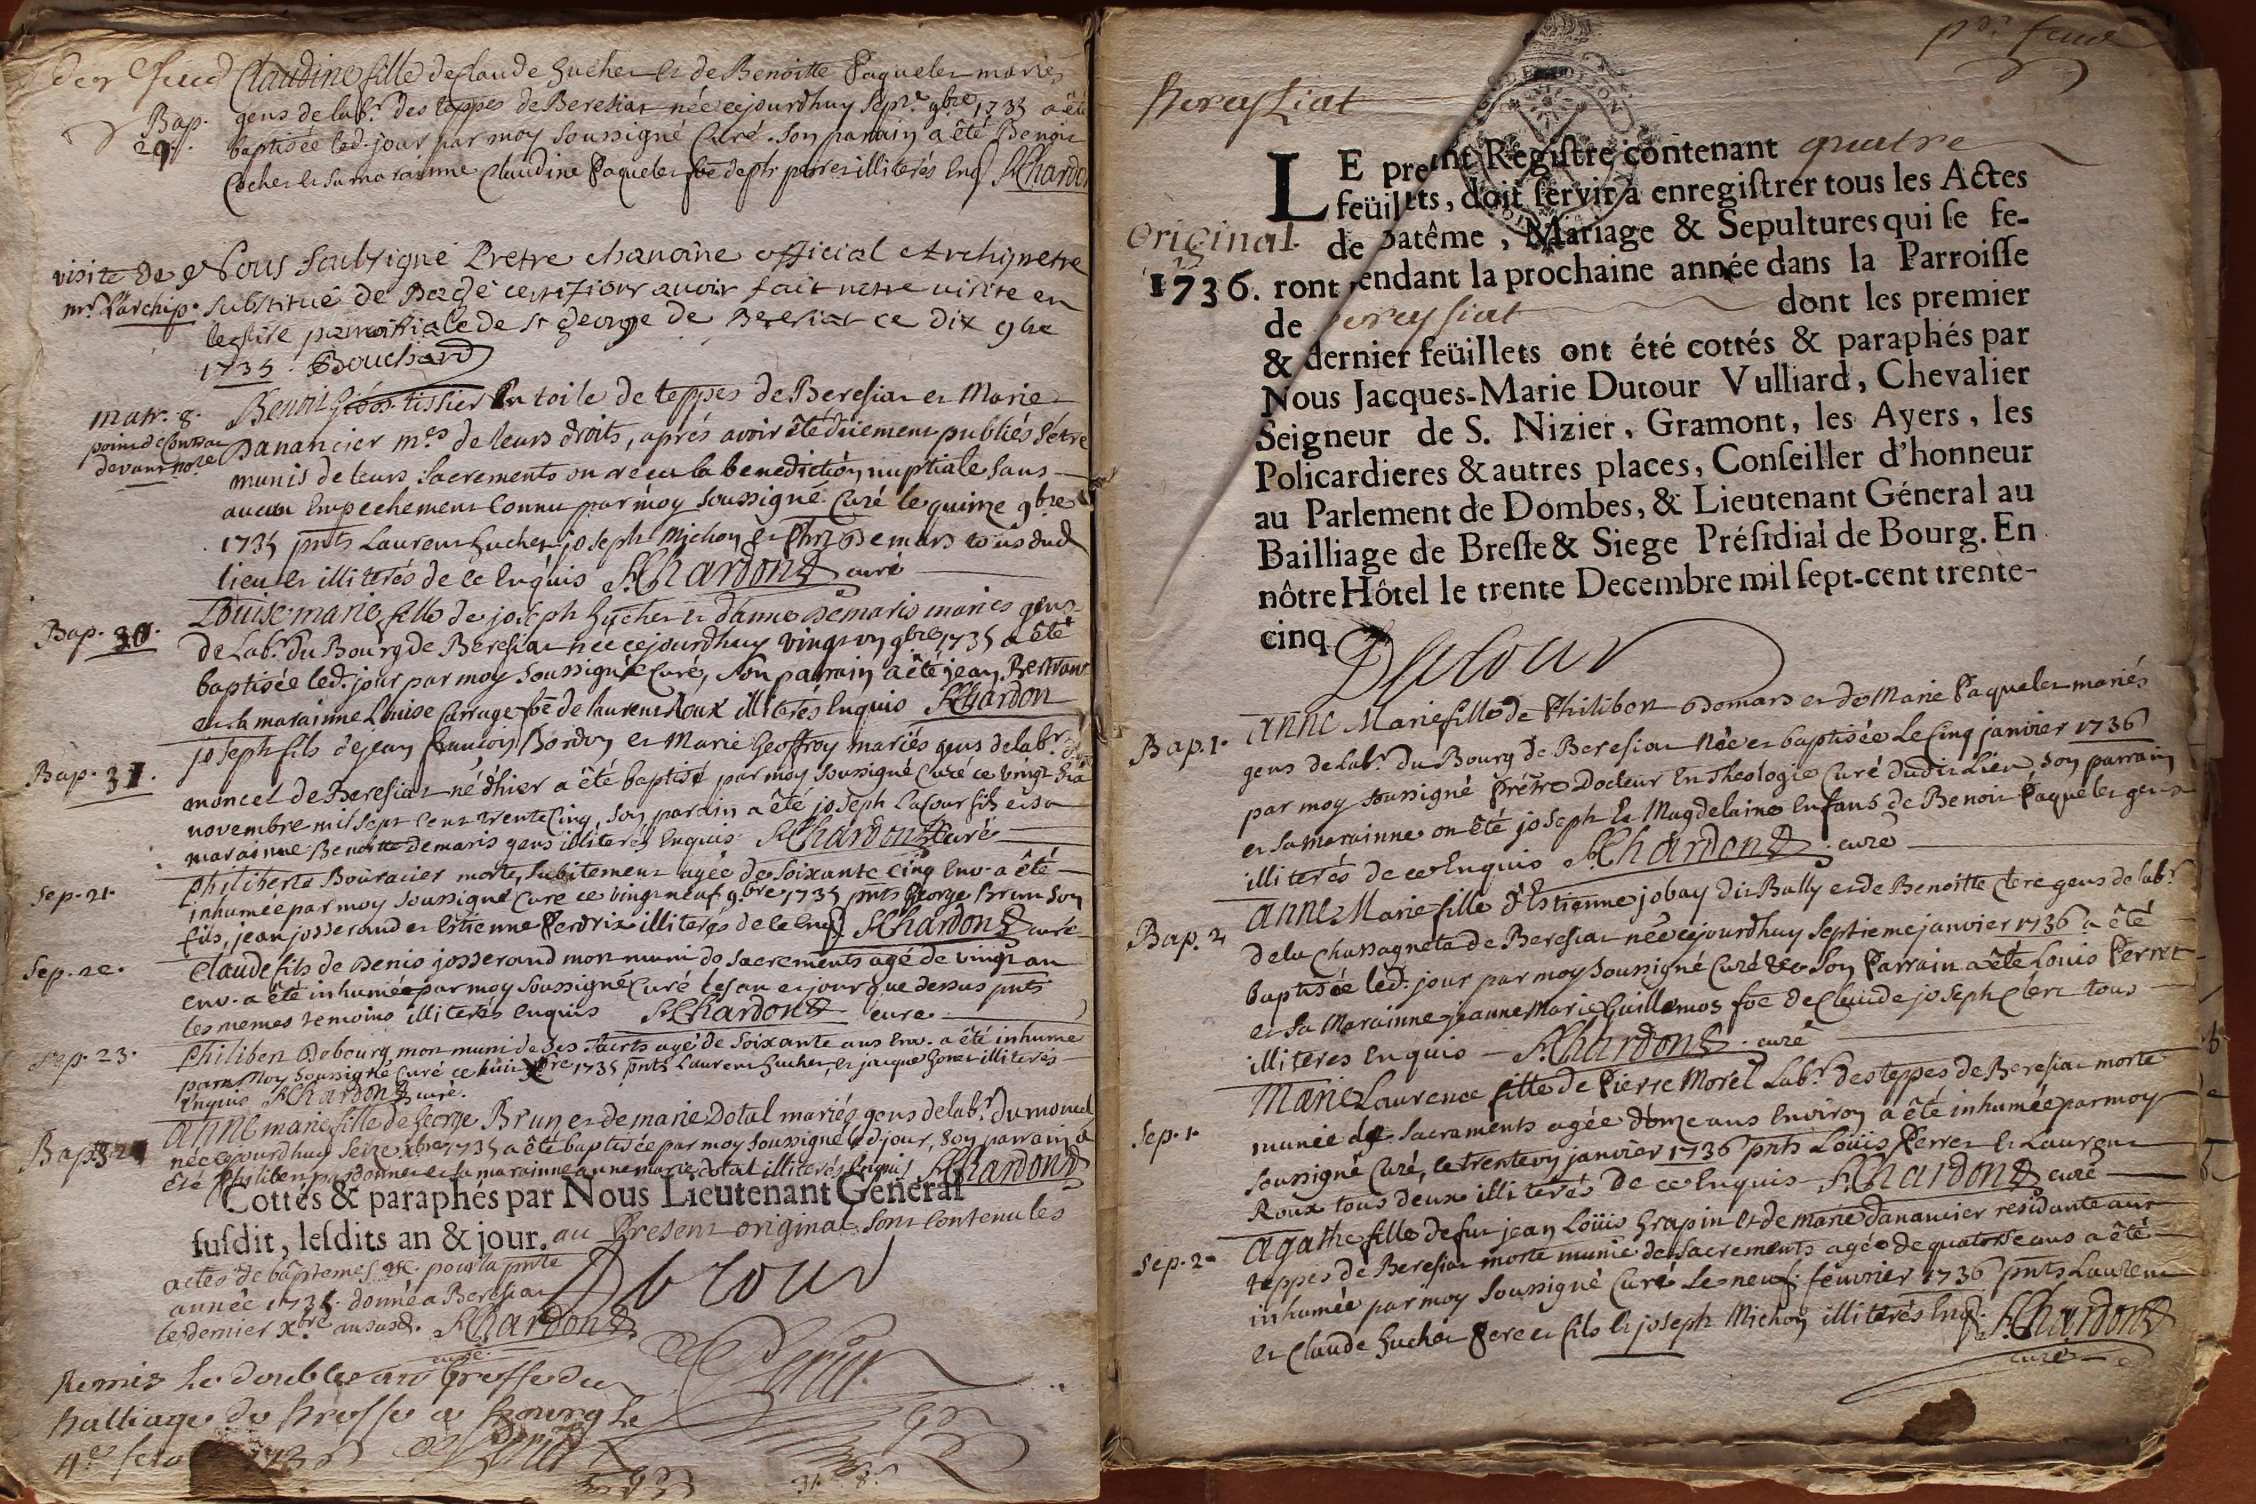 der feud
Claudine fille de Claude Hucher et de Benoitte Paquelet mariés
Bap. gens de labr. des teppes de Beresiat née cejourdhuy sept.e 9bre 1735 a été
29. baptisée led. jour par moy soussigné Curé. Son parain a été Benoit
Cocher et sa marainne Claudine Paquelet illiterés Enq. Chardon
visite de Nous soubsigné Pretre chanoine official et Archipretre
mr. Larchip. substitué de Bagé certifions avoir fait netre visite en
leglise paroissiale de St George de Beresiat ce dix 9bre
1735. Bouchard
mar. 8. Benoit tissier en toile de teppes de Beresiat et Marie
point de Contrac Danancier m.es de leurs droits, aprés avoir été düement publiés &
devant not.re munis de leurs sacrements on recu la benediction nuptiale sans
aucun Empechement Connu par moy soussigné Curé le quinze 9bre
1735 pnts Laurent Huchet joseph Michon et Phit Demars tous dud.
lieu et illiterés de ce Enquis Chardon curé
Bap. 30. Louise marie fille de joseph Hucher et danne Demaris mariés gens
de Labr. du Bourg de Beresiat née cejourdhuy vingt un 9bre 1735 a été
baptisée led. jour par moy soussigné Curé, son parrain a été jean Bertrand
et la marainne Louise Carruge fe de laurent Roux illiterés Enquis Chardon
Bap. 31. joseph fils de jean francois Bordon et Marie Geoffroy mariés gens de labr. du
moncel de Beresiat né d'hier a été baptisé par moy soussigné Curé ce vingt
novembre mil sept cent trente Cinq, son parain a été joseph Lacour fils et sa
marainne Benoitte demaris gens illiterés Enquis Chardon curé
Sep. 21. Philiberte Bouracier morte subitement agée de soixante cinq Env. a été
inhumée par moy soussigné Curé ce vingt neuf 9bre 1735 pnts George Brun son
fils, jean josserand et Estienne Perdrix illiterés de ce Enq. Chardon curé
Sep. 22. Claude fils de Denis josserand mort muni de sacrements agé de vingt an
env. a été inhumé par moy soussigné Curé les an et jour que dessus pnts
les memes temoins illiterés enquis Chardon curé
Sep. 23. Philibert Debourg mort muni de ses sacrts agé de soixante ans Env. a été inhumé
par Moy soussigné Curé ce huit Xbre 1735 pnts Laurent Hucher et jacque Gonet illiterés
Enquis Chardon curé.
Bap. 32 Anne marie fille de George Brun et de marie Dotal mariés gens de labr. du moncel
née cejourdhuy seize Xbre 1735 a été baptisée par moy soussigné led jour, son parrain a
été Philibert et sa marainne anne marie dotal illiterés Enquis Chardon
Cottés & paraphés par Nous Lieutenant General
susdit, lesdits an & jour. au Present original sont contenu les
actes de bâptemes &c. pour la pnte
année 1735. donné a Beresiat Dutour
le dernier Xbre an susd. Chardon
curé
Remis le double au greffe du
balliage de bresse a bourg le
Perier
Bereysiat
LE present Registre contenant quatre
feüillets, doit servir à enregistrer tous les Actes
Original de Batême, Mariage & Sepultures qui se fe-
1736. ront pendant la prochaine année dans la Parroisse
de Bereysiat dont les premier
& dernier feüillets ont été cottés & paraphés par
Nous Jacques-Marie Dutour Vulliard, Chevalier
Seigneur de S. Nizier, Gramont, les Ayers, les
Policardieres & autres places, Conseiller d'honneur
au Parlement de Dombes, & Lieutenant Géneral au
Bailliage de Bresse & Siege Présidial de Bourg. En
nôtre Hôtel le trente Decembre mil sept-cent trente-
cinq Dutour
Bap. 1. Anne Marie fille de Philibert Demars et de Marie Paquelet mariés
gens de Labr. du Bourg de Beresiat Née et baptisée Le Cinq janvier 1736
par moy soussigné Prétre Docteur En Theologie Curé dudit Lieu son parrain
et sa marainne on été joseph Et Magdelaine Enfans de Benoit Paquelet gens
illiterés de ce Enquis Chardon curé
Bap. 2 Anne Marie fille d'Estienne jobay dit Bally et de Benoitte Clere gens de labr
de la Chassagneta de Beresiat née cejourdhuy septieme janvier 1736 a été
baptisée led. jour par moy soussigné Curé & Son Parrain a été Louis Perret
et sa Marainne jeanne Marie Guillemos fe de Claude joseph Clerc tous
illiteres Enquis Chardon curé
Sep. 1. Marie Laurence fille de Pierre Morel Labr. des teppes de Beresiat morte
munie de sacraments agée d'onze ans Environ a été inhumée par moy
soussigné Curé, le trente un janvier 1736 pnts Loüis Perret et Laurent
Roux tous deux illiterés De ce Enquis Chardon curé
Sep. 2. Agathe fille de fut jean Loüis Grapin et de marie danancier residante aux
teppes de Beresiat morte munie de sacrements agée de quatorse ans a été
inhumée par moy soussigné Curé Le neuf. fevrier 1736 pnts Laurent
et Claude Hucher Pere et fils et joseph Michon illiterés Enq. Chardon
curé